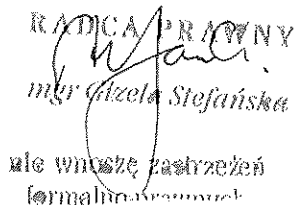 RADCA PRAWNY
mgr Gizela Stefańska
nie wnoszę zastrzeżeń
formalno-prawnych